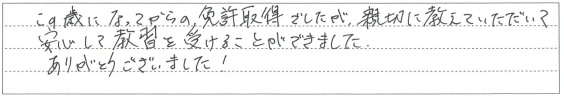 この歳になってからの免許取得でしたが、親切に教えていただいて
安心して教習を受けることができました.
ありがとうございました!